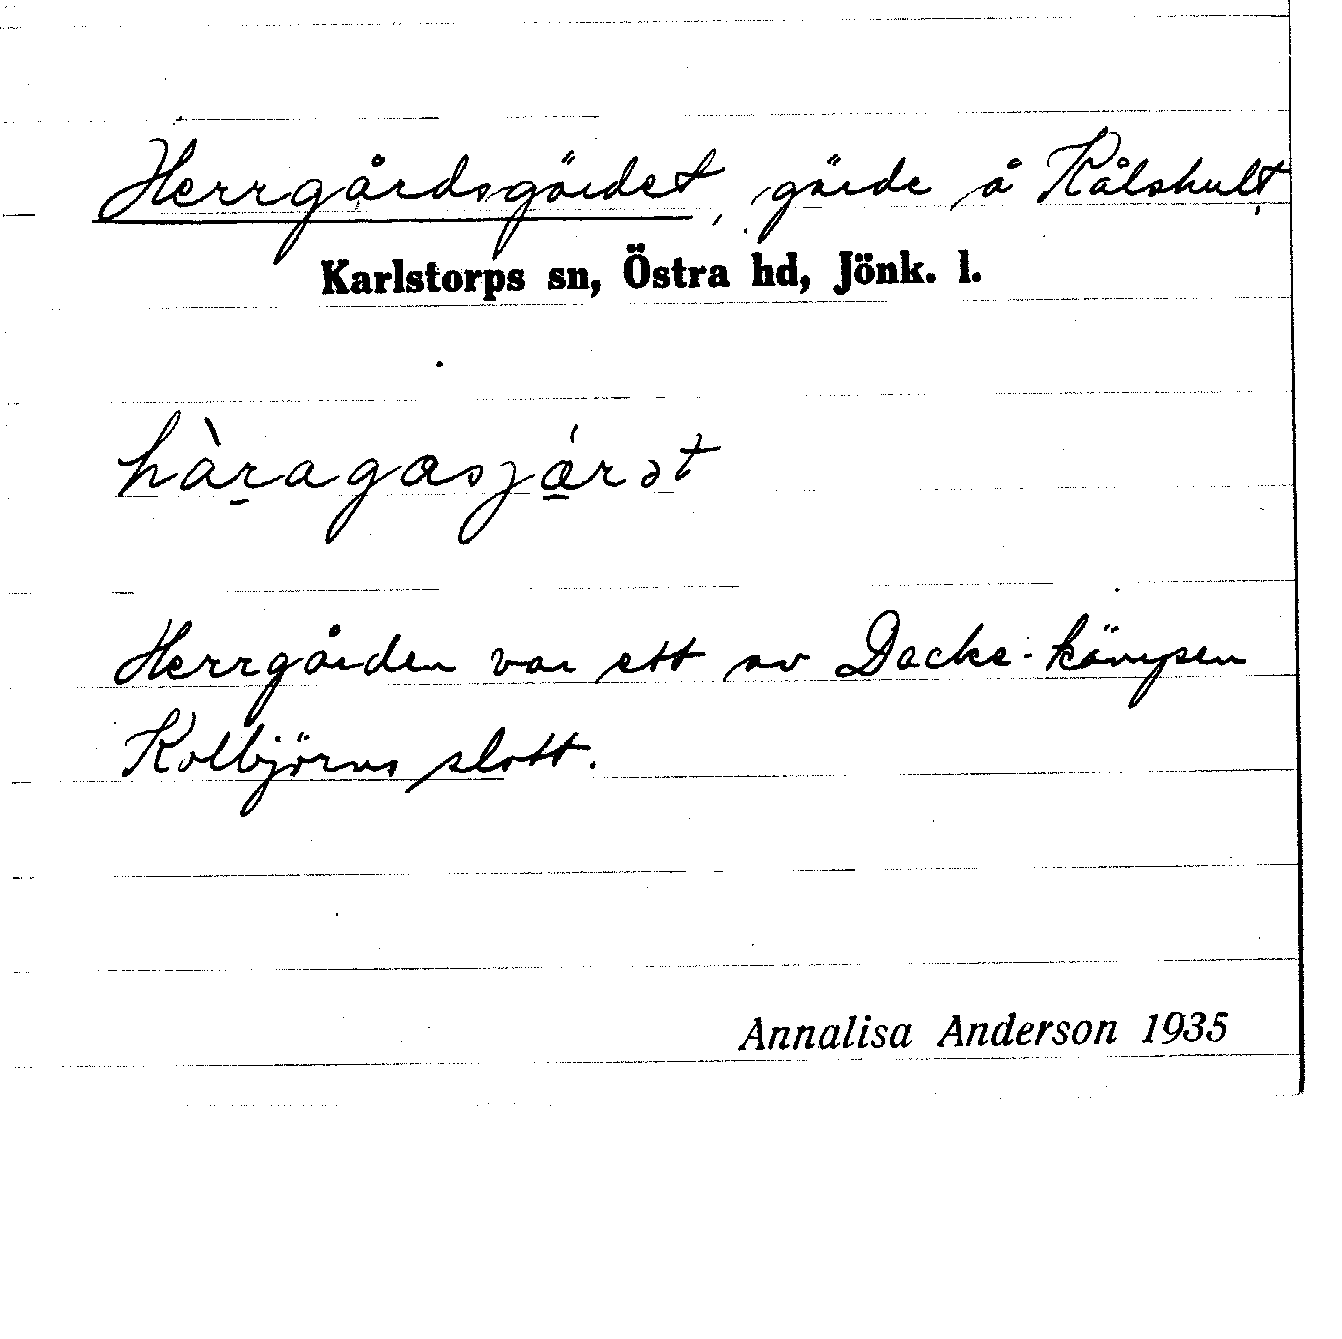 Herrgårdsgärdet, gärde å Kålshult,
Karlstorps sn, Östra hd, Jönk. l.
hàragasjárət
Herrgården var ett av Dacke-kämpen
Kolbjörns slott.
Annalisa Anderson 1935